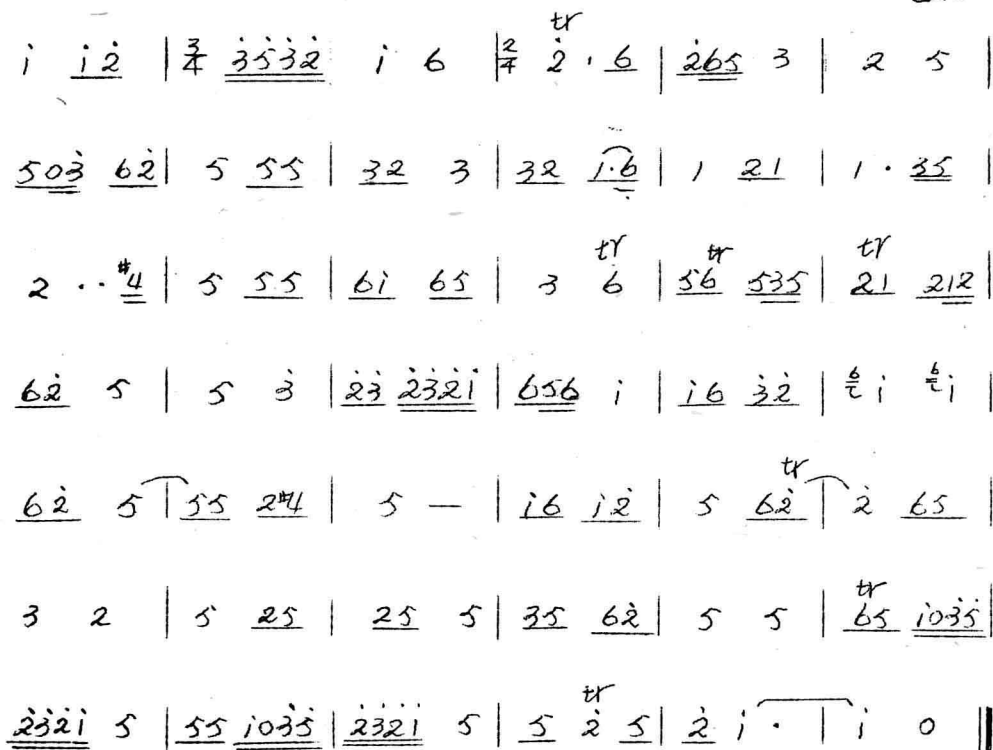 i i2 | 3/4 3532 i 6 | 2/4 tr 2 · 6 | 265 3 | 2 5 |
503 62 | 5 55 | 32 3 | 32 1·6 | 1 21 | 1 · 35 |
2 ·· #4 | 5 55 | 6i 65 | 3 tr 6 | tr 56 535 | tr 21 212 |
62 5 | 5 3 | 23 2321 | 656 i | i6 32 | 6 i 6 i |
62 5 | 55 2#4 | 5 — | i6 i2 | 5 tr 62 | 2 65 |
3 2 | 5 25 | 25 5 | 35 62 | 5 5 | tr 65 i035 |
232i 5 | 55 i035 | 232i 5 | 5 tr 2 5 | 2 i · | i 0 ||